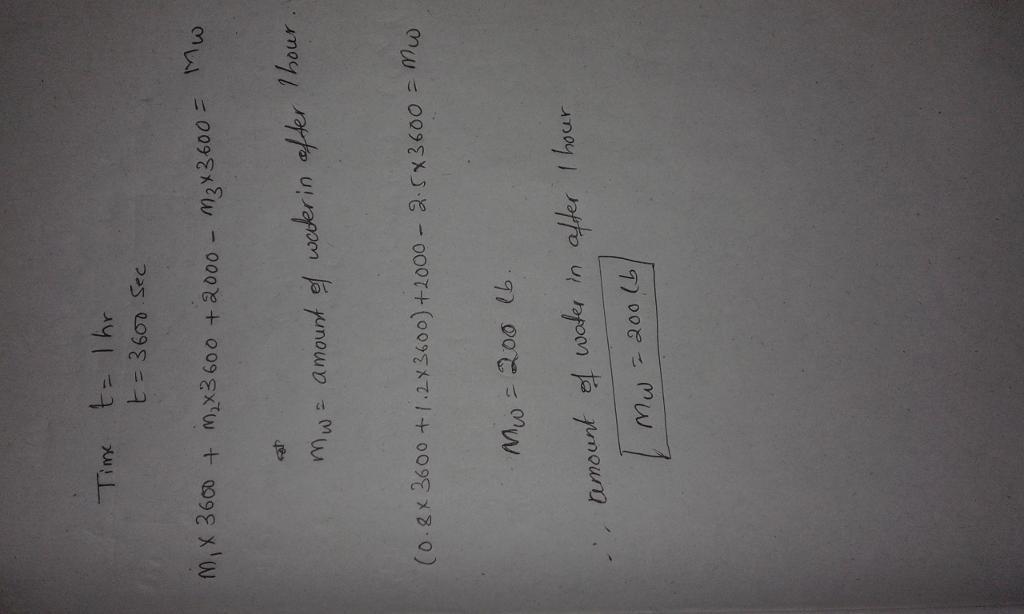 Time t = 1 hr
t = 3600 sec
ṁ₁ × 3600 + ṁ₂ × 3600 + 2000 - ṁ₃ × 3600 = Mw
Mw = amount of water in after 1 hour.
(0.8 × 3600 + 1.2 × 3600) + 2000 - 2.5 × 3600 = Mw
Mw = 200 lb.
∴ amount of water in after 1 hour
Mw = 200 lb